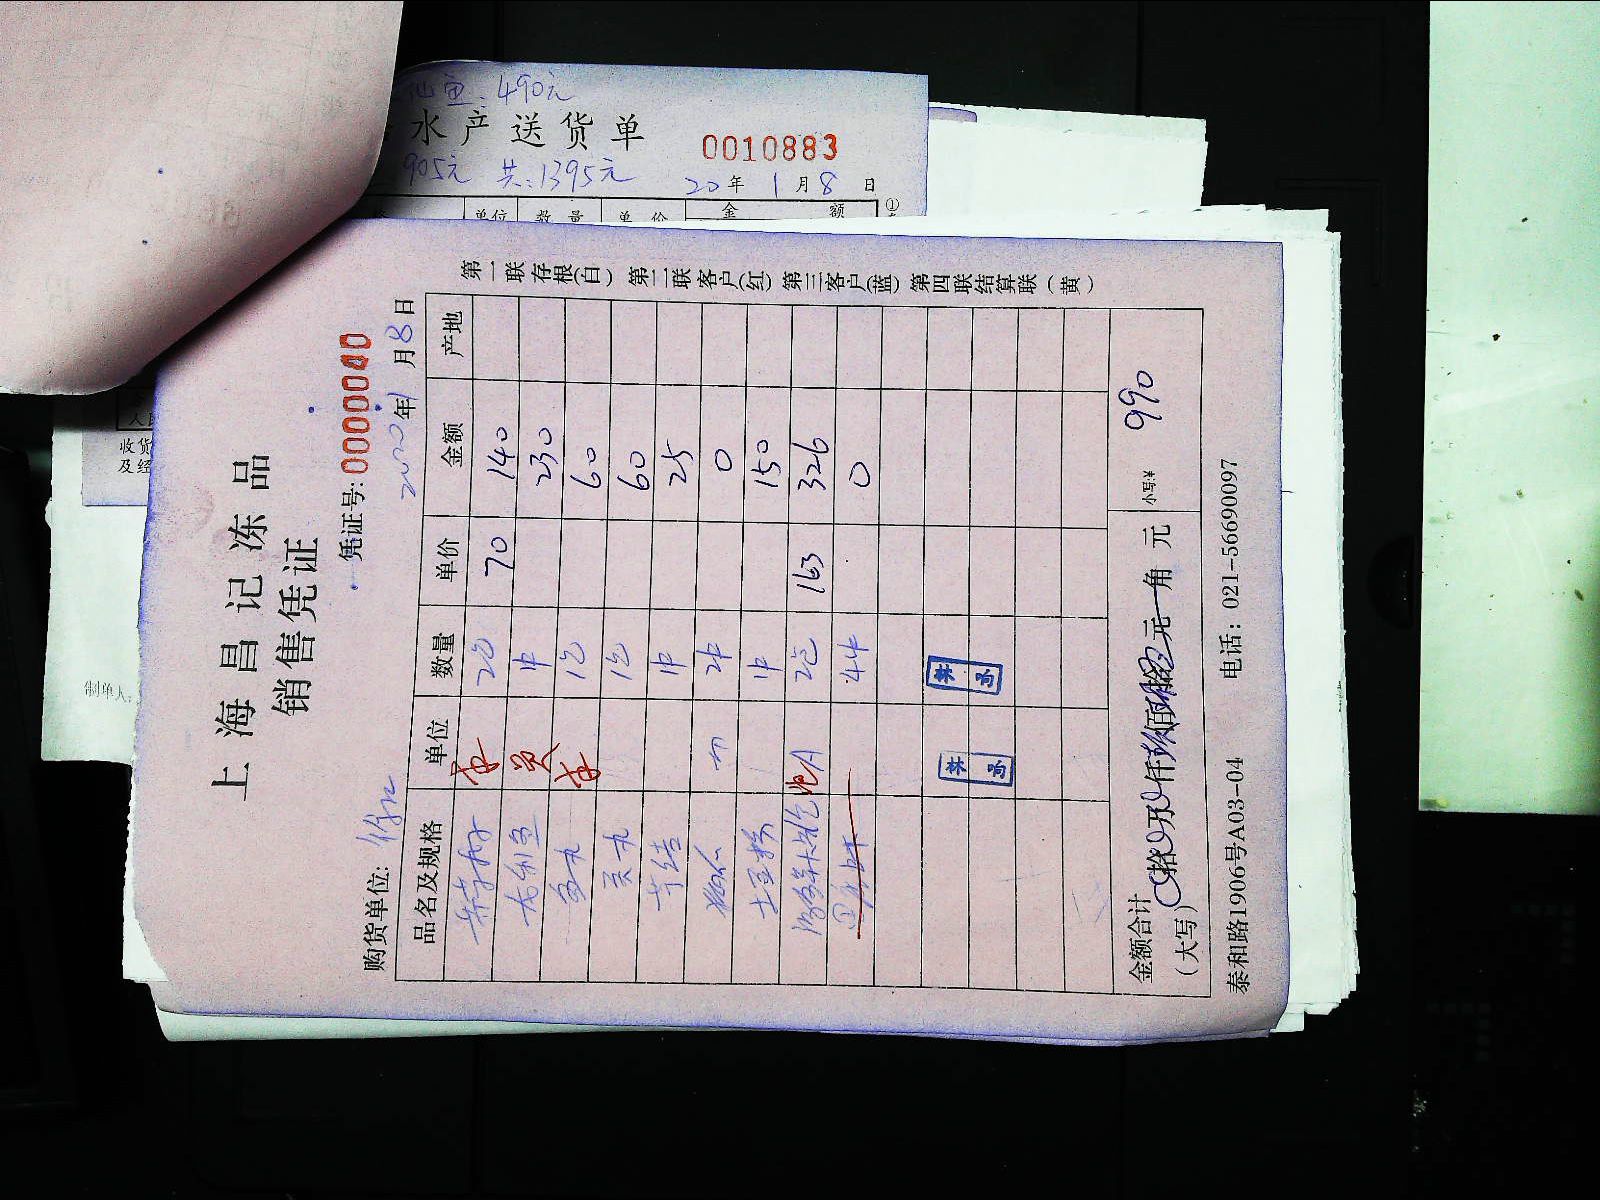 鱼:490元
水产送货单
0010883
905元 共:1395元
20年1月8日
单位 数量 单价 金额
①
收货
及经
制单人:
上海昌记冻品
销售凭证
凭证号:0000040
购货单位:
2020年1月8日
品名及规格 单位 数量 单价 金额 产地
2包 70 140
龙利鱼 1件 230
鱼丸 1包 60
贡丸 1包 60
千结 1件 25
2件 0
土豆粉 1件 150
2包 163 326
4件 0
金额合计
(大写) 拾 万 仟 玖佰 玖拾 元 角 元 小写:¥ 990
泰和路1906号A03-04 电话:021-56690097
第一联存根(白) 第二联客户(红) 第三客户(蓝) 第四联结算联(黄)